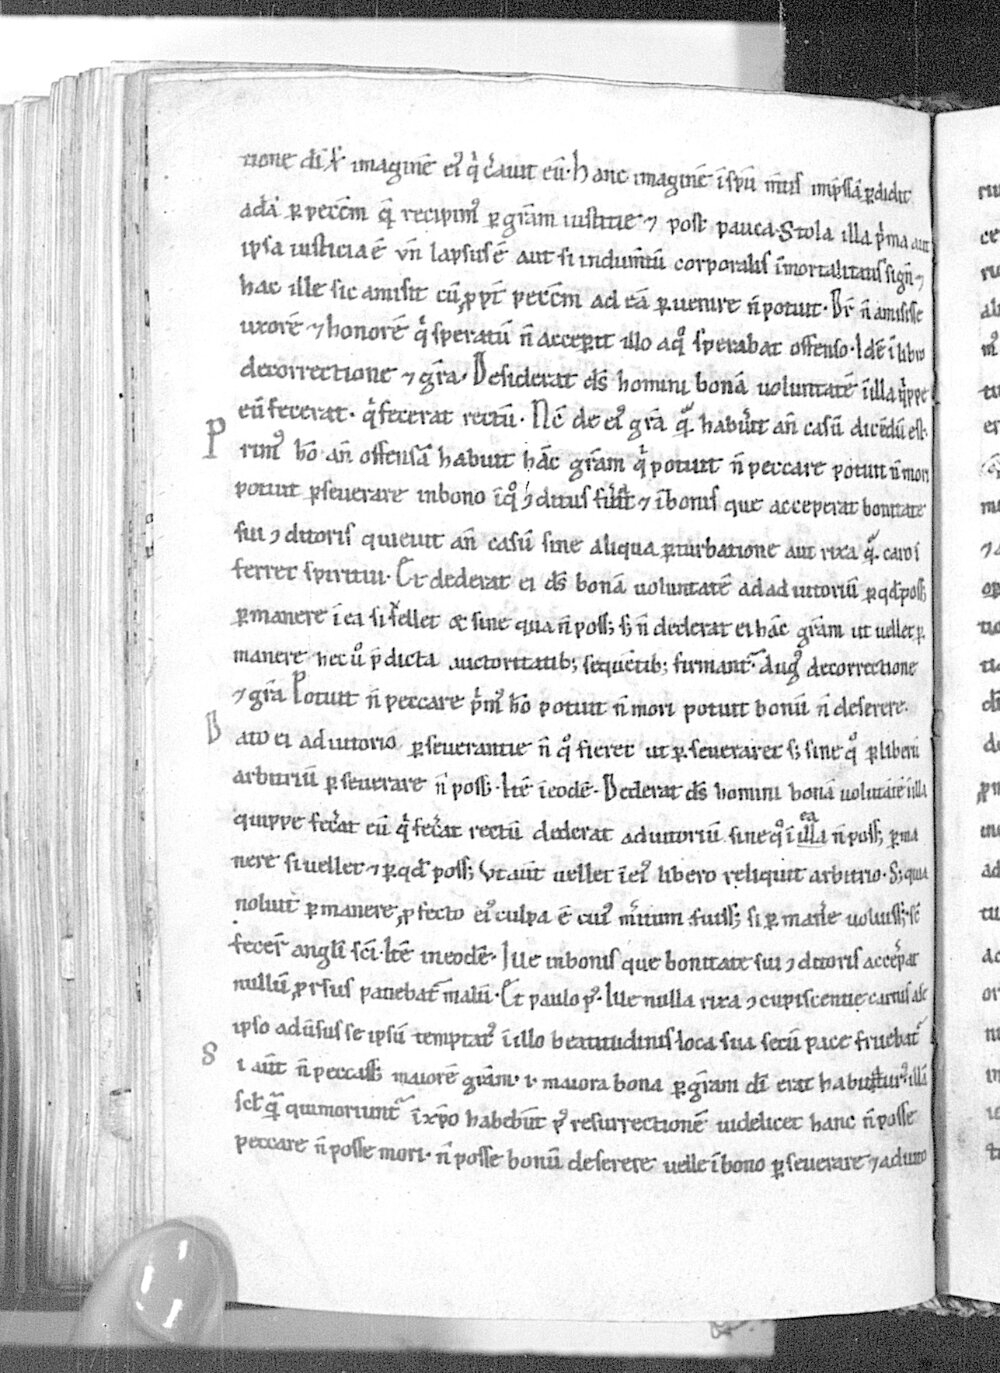 tione dī ꝟ imaginē eiꝰ qͥ cͤauit eū. Hanc imaginē ī spū mͣtis imp̄ssā ꝑdidit
adā ꝑ peccm̄ qͣ recipimꝰ ꝑ grām iustitie ⁊ post pauca. Stola illa pͥma aut
ipsa iusticia ē vn̄ lapsus ē aut si indumtū corporalis īmortalitatis sign̄ ⁊
hac ille sic amisit cū ꝓpt̄ peccm̄ ad eā ꝑuenire n̄ potuit. Dr̄ n̄ amisisse
uxorē ⁊ honorē qͥ speratū n̄ accepit illo a qͦ sperabat offenso. Idē ī libro
de correctione ⁊ grā. Desiderat ds̄ homini bonā voluntatē ī illa qͥppe
eū fecerat. qͥ fecerat rectū. Nc̄ de eiꝰ grā qͣ habuit an̄ casū dicēdū est.
Primꝰ hō an̄ offensā habuit hāc grām qͣ potuit n̄ peccare potuit n̄ mori
potuit ꝑseuerare in bono ī qͦ ꝯditus fuit ⁊ ī bonis que acceperat bonitate
sui ꝯditoris quieuit an̄ casū sine aliqua ꝑturbatione aut rixa qͣ caro ī
ferret spiritui. Et dederat ei ds̄ bonā voluntatē ad adiutoriū ꝑ qd̄ poss;
ꝑmanere ī ea si uellet ac sine qua n̄ poss; s; n̄ dederat ei hāc grām ut uellet ꝑ
manere hec ū p̄dicta auctoritatib; sequētib; firmant̄. Augꝰ de correctione
⁊ grā Potuit n̄ peccare pͥmꝰ hō potuit n̄ mori potuit bonū n̄ deserere.
Dato ei adiutorio ꝑseuerantie n̄ qͦ fieret ut ꝑseueraret s; sine qͦ ꝑ liberū
arbitriū ꝑseuerare n̄ poss;. Itē ī eodē. Dederat ds̄ homini bonā volūtatē ī illa
quippe fecͤat eū qͥ fecͤat rectū dederat adiutoriū sine qͦ ī illa ea n̄ poss; ꝑma
nere si uellet ⁊ ꝑ qd̄ poss; Vt aūt uellet ī eiꝰ libero reliquit arbitrio. S; quia
noluit ꝑmanere ꝓfecto eiꝰ culpa ē cuiꝰ mͥitum fuiss; si ꝑmanͤe uoluiss; sc̄
fecer̄ angli sc̄i. Itē in eodē. Ille in bonis que bonitate sui ꝯditoris accepͤat
nullū ꝓrsus patiebat̄ malū. Et paulo pꝰ. Ille nulla rixa ⁊ ꝯcupiscentie carnis a se
ipso aduͤsus se ipsū temptatꝰ ī illo beatitudinis loca sua secū pace fruebat̄
Si aūt n̄ peccass; maiorē grām. i. maiora bona ꝑ grām dī erat habiturꝰ illā
scl̄ qͣ qui moriunt̄ ī xp̄o habebūt pꝰ resurrectionē uidelicet hanc n̄ posse
peccare n̄ posse mori. n̄ posse bonū deserere uelle ī bono ꝑseuerare ⁊ adiuto